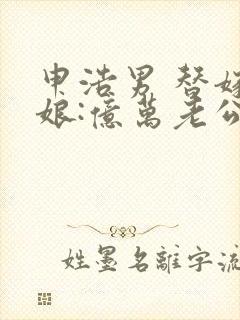 申浩男 替嫁
娘:億萬老公
姓墨名離字流